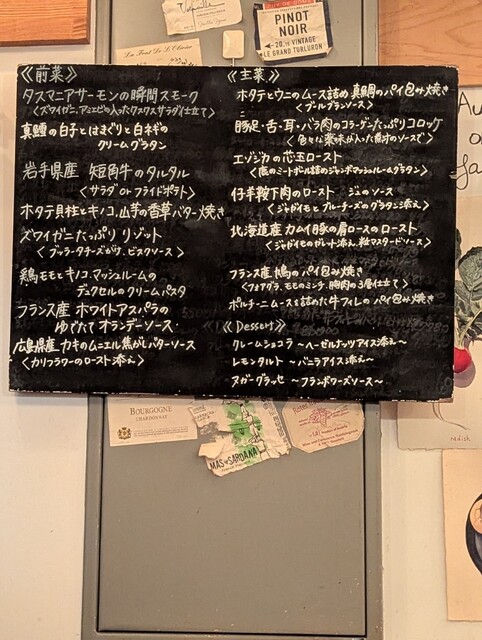 La Font De L'Olivier
PINOT
NOIR
20.15 VINTAGE
LE GRAND TURLURON
《前菜》
タスマニアサーモンの瞬間スモーク
<ズワイガニ、アミエビの入ったクスクスサラダ仕立て>
真鱈の白子とはまぐりと白ネギの
クリームグラタン
岩手県産 短角牛のタルタル
<サラダ or フライドポテト>
ホタテ貝柱とキノコ、山芋の香草バター焼き
ズワイガニたっぷり リゾット
<ブッラータチーズがけ、ビスクソース>
鶏モモとキノコ、マッシュルームの
デュクセルのクリームパスタ
フランス産 ホワイトアスパラの
ゆでたて オランデーソース
広島県産 カキのムニエル 焦がしバターソース
<カリフラワーのロースト添え>
《主菜》
ホタテとウニのムース詰め 真鯛のパイ包み焼き
<ブールブランソース>
豚足・舌・耳・バラ肉のコラーゲンたっぷりコロッケ
エゾジカの芯玉ロースト
<鹿のミートボール詰めジャンボマッシュルームグラタン>
仔羊鞍下肉のロースト ジュのソース
<ジャガイモとブルーチーズのグラタン添え>
北海道産 カムイ豚の肩ロースのロースト
<ジャガイモのガレット添え、粒マスタードソース>
フランス産 鳩のパイ包み焼き
<フォアグラ、モモのミンチ、胸肉の3層仕立て>
ポルチーニムースを詰めた牛フィレのパイ包み焼き
《Dessert》
クレームショコラ 〜ヘーゼルナッツアイス添え〜
レモンタルト 〜バニラアイス添え〜
ヌガーグラッセ 〜フランボワーズソース〜
BOURGOGNE
CHARDONNAY
MAS SARDANA
radish